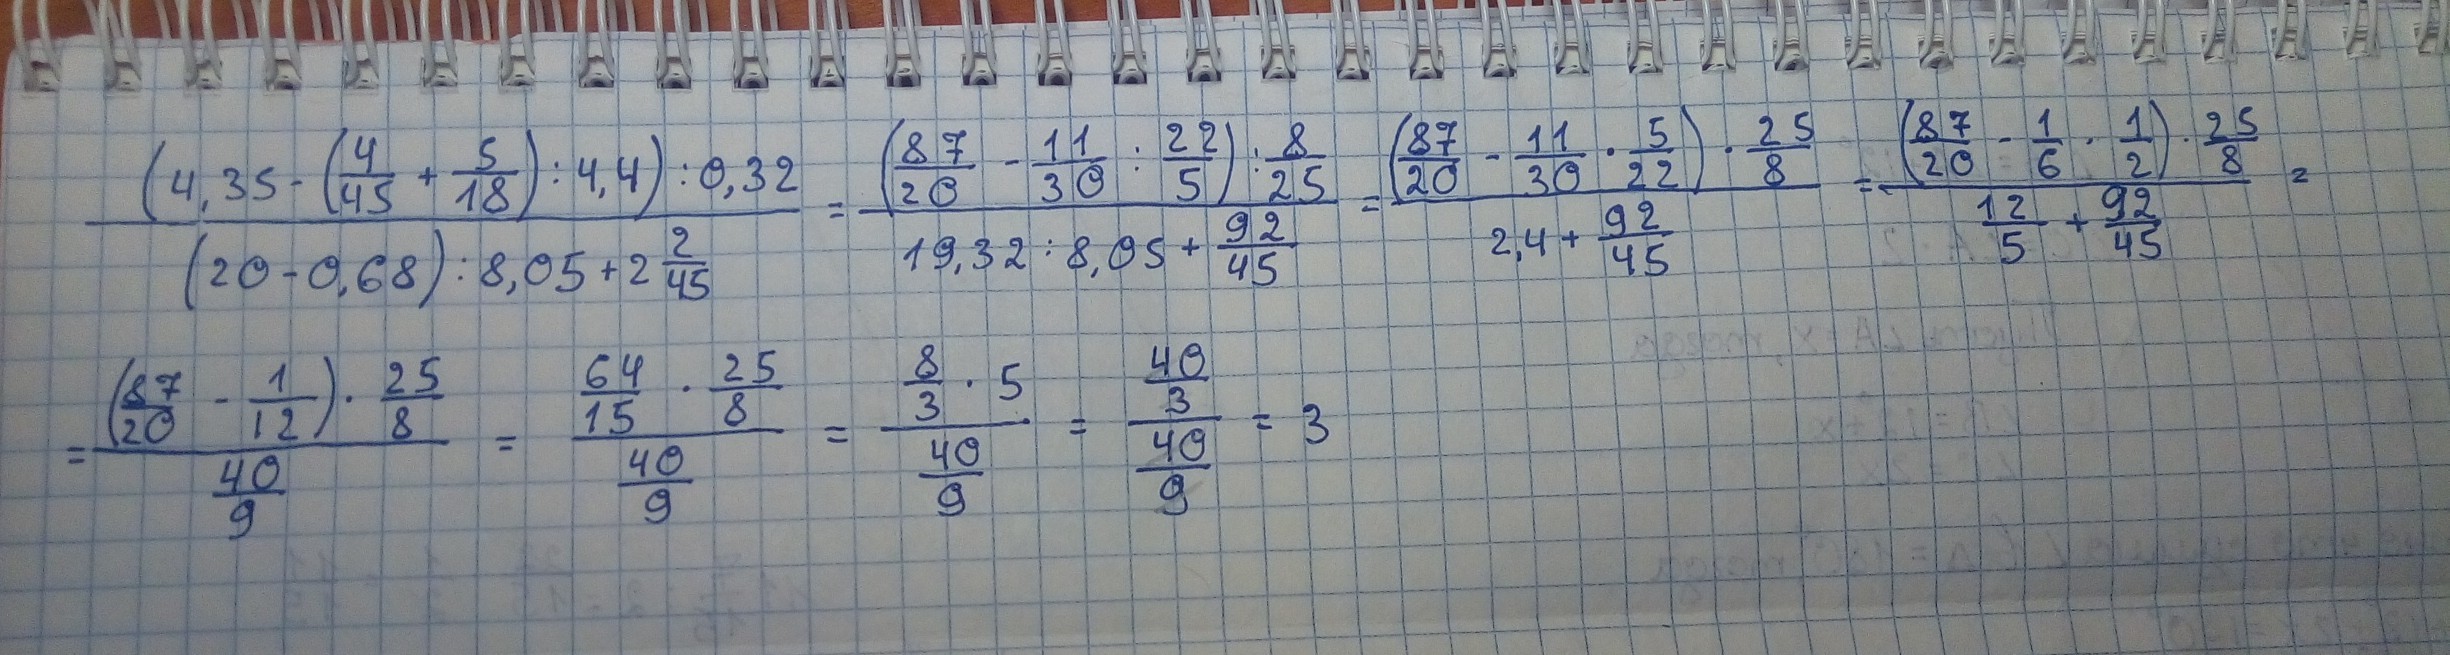 (4,35 - (4/45 + 5/18) : 4,4) : 0,32 / (20 - 0,68) : 8,05 + 2 2/45 = (87/20 - 11/30 : 22/5) : 8/25 / 19,32 : 8,05 + 92/45 = (87/20 - 11/30 · 5/22) · 25/8 / 2,4 + 92/45 = (87/20 - 1/6 · 1/2) · 25/8 / 12/5 + 92/45 =
= (87/20 - 1/12) · 25/8 / 40/9 = 64/15 · 25/8 / 40/9 = 8/3 · 5 / 40/9 = 40/3 / 40/9 = 3